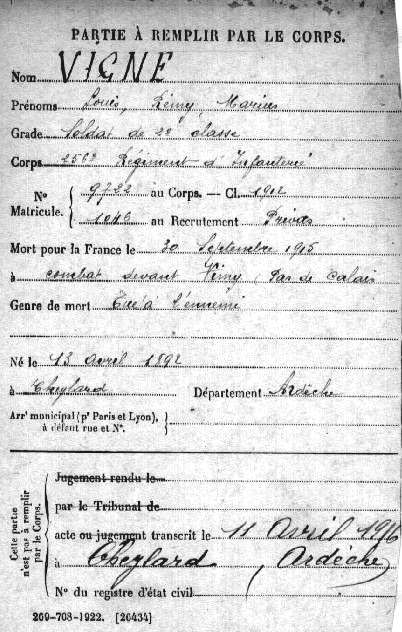 PARTIE À REMPLIR PAR LE CORPS.
Nom VIGNE
Prénoms Louis, Rémy, Marius
Grade Soldat de 2e classe
Corps 256e Régiment d'Infanterie
No Matricule. { 9722 au Corps. — Cl. 1912
1043 au Recrutement Privas
Mort pour la France le 30 Septembre 1915
à combat devant Vimy, Pas de Calais
Genre de mort Tué à l'ennemi
Né le 13 avril 1892
à Cheylard Département Ardèche
Arrt municipal (pr Paris et Lyon), à défaut rue et No. }
Cette partie n'est pas à remplir par le Corps. {
Jugement rendu le
par le Tribunal de
acte ou jugement transcrit le 11 avril 1916
à Cheylard, Ardèche
No du registre d'état civil
269-708-1922. [26434]